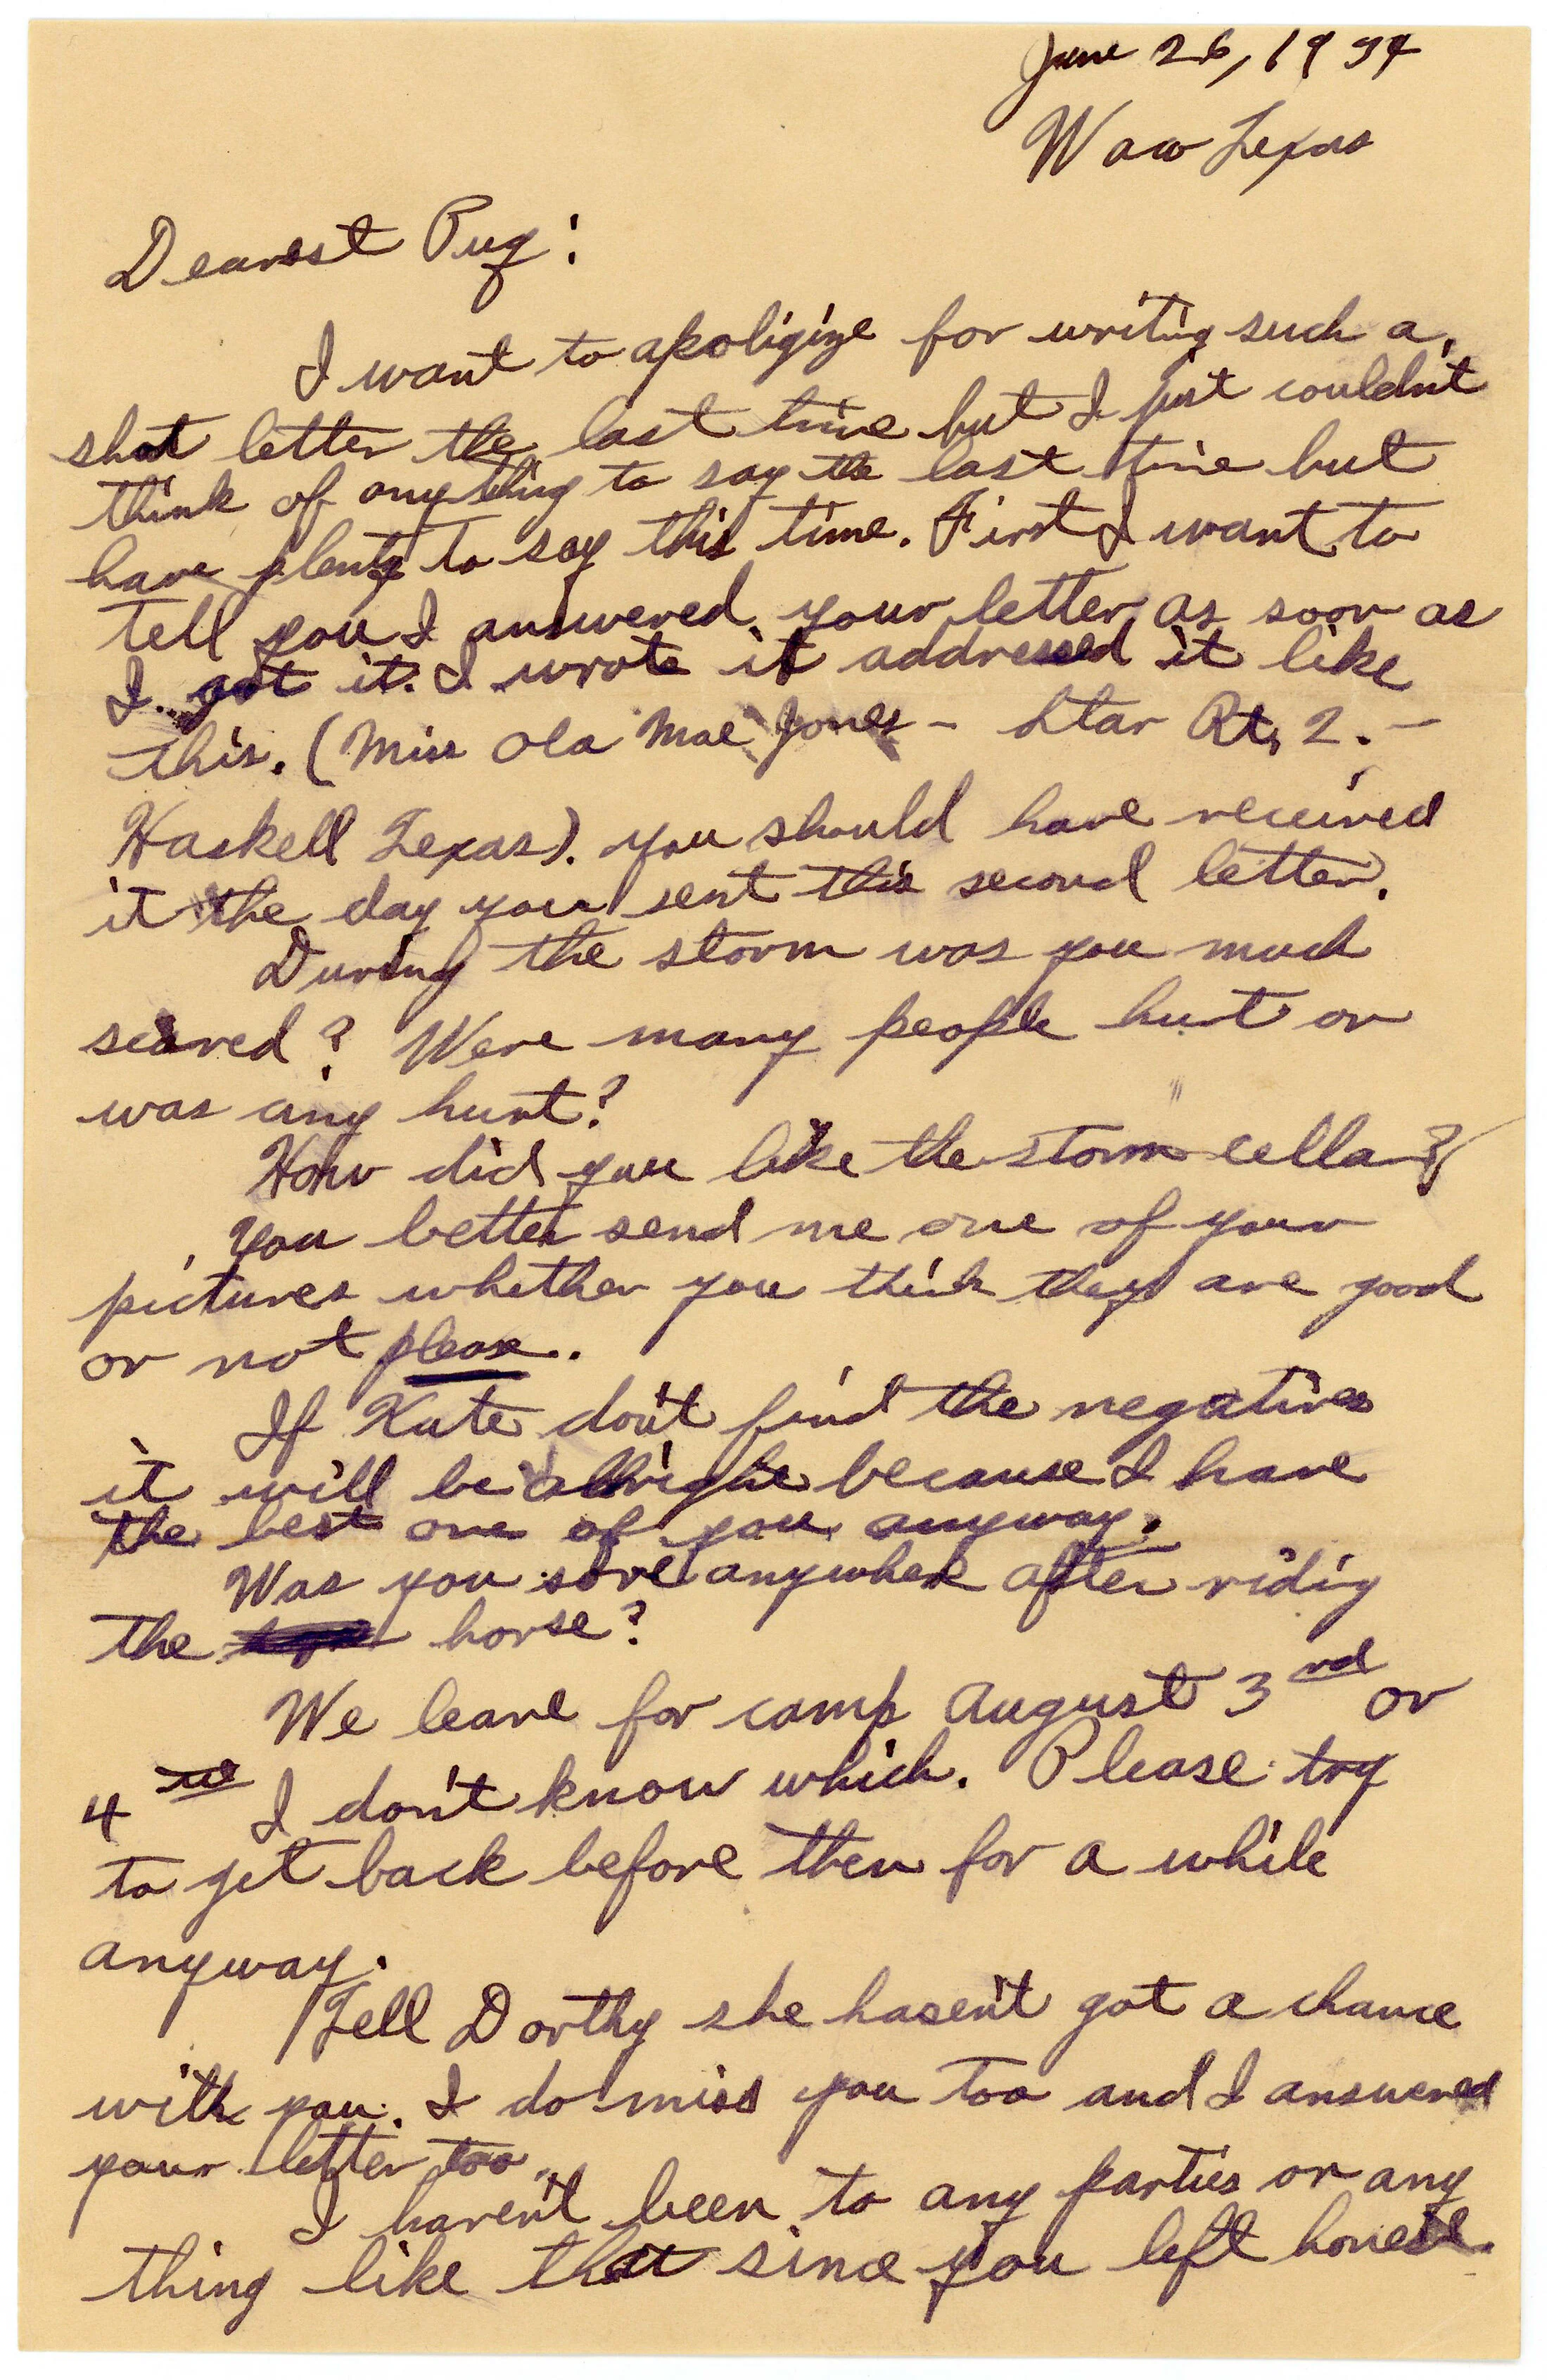 June 26, 1934
Waco Texas
Dearest Pug:
I want to apoligize for writing such a
shot letter the last time but I just couldn't
think of anything to say the last time but
have plenty to say this time. First I want to
tell you I answered your letter as soon as
I got it. I wrote it addressed it like
this. (Miss Ola Mae Jones – Star Rt. 2. –
Haskell Texas). you should have received
it the day you sent this second letter.
During the storm was you much
scared? Were many people hurt or
was any hurt?
How did you like the storm cellar?
You better send me one of your
pictures whether you think they are good
or not please.
If Kate don't find the negatives
it will be allright because I have
the best one of you anyway.
Was you sore anywhere after riding
the horse?
We leave for camp August 3rd or
4 I don't know which. Please try
to get back before then for a while
anyway.
Tell Dorthy she hasen't got a chance
with you. I do miss you too and I answered
your letter too.
I haven't been to any parties or any
thing like that since you left honest.